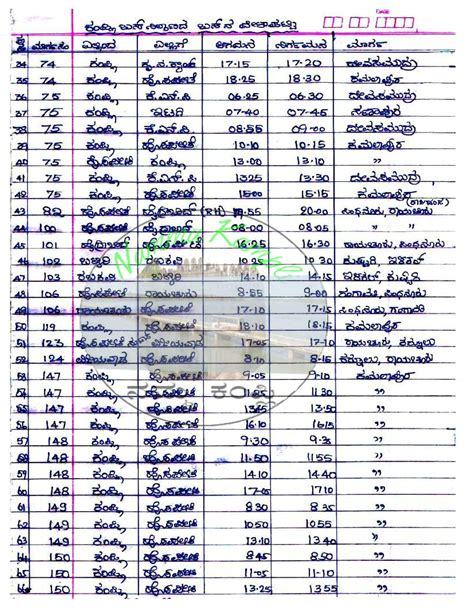 ಕಂಪ್ಲಿ ಬಸ್ ನಿಲ್ದಾಣದ ಬಸ್ ನ ವೇಳಾಪಟ್ಟಿ DATE
ಮಾರ್ಗಸಂ ಎಲ್ಲಿಂದ ಎಲ್ಲಿಗೆ ಆಗಮನ ನಿರ್ಗಮನ ಮಾರ್ಗ
34 74 ಕಂಪ್ಲಿ 17-15 17-20 ದೇವಸಮುದ್ರ
35 74 ಕಂಪ್ಲಿ ಹೊಸಪೇಟೆ 18.25 18.30 ಕಮಲಾಪುರ
36 75 ಕಂಪ್ಲಿ ಕೆ.ಎಸ್.ಪಿ 06.25 06.30 ದೇವಸಮುದ್ರ
37 75 ಕಂಪ್ಲಿ ಇಟಗಿ 07-40 07-45
38 75 ಕಂಪ್ಲಿ ಕೆ.ಎಸ್.ಪಿ 08.55 09.00 ದೇವಸಮುದ್ರ
39 75 ಕಂಪ್ಲಿ ಹೊಸಪೇಟೆ 10.10 10.15 ಕಮಲಾಪುರ
40 75 ಹೊಸಪೇಟೆ ಕಂಪ್ಲಿ 13.00 13.10 "
41 75 ಕಂಪ್ಲಿ ಕೆ.ಎಸ್.ಪಿ 1325 13.30 ದೇವಸಮುದ್ರ
42 75 ಕಂಪ್ಲಿ ಹೊಸಪೇಟೆ 15.15 ಕಮಲಾಪುರ
43 82 ಹೊಸಪೇಟೆ (RH) 20.00 ಸಿಂಧನೂರು, ರಾಯಚೂರು
44 100 ಹೊಸಪೇಟೆ 08.00 08.05 " "
45 101 ಹೊಸಪೇಟೆ 16.25 16.30 ರಾಯಚೂರು, ಸಿಂಧನೂರು
46 102 ಬಳ್ಳಾರಿ ರಬಕವಿ 10.25 10.30 ಕುಷ್ಟಗಿ, ಇಳಕಲ್
47 103 ರಬಕವಿ ಬಳ್ಳಾರಿ 14.10 14.15 ಇಳಕಲ್, ಕುಷ್ಟಗಿ
48 106 ಹೊಸಪೇಟೆ ರಾಯಚೂರು 8.55 9-00 ಗಂಗಾವತಿ, ಸಿಂಧನೂರು
49 106 ರಾಯಚೂರು ಹೊಸಪೇಟೆ 17.10 17.15 ಸಿಂಧನೂರು, ಗಂಗಾವತಿ
50 119 ಕಂಪ್ಲಿ ಹೊಸಪೇಟೆ 18.10 18.15 ಕಮಲಾಪುರ
51 123 ಹೊಸಪೇಟೆ 17-05 17-10 ರಾಯಚೂರು, ಕರ್ನೂಲು
52 124 ಹೊಸಪೇಟೆ 8.10 8-15 ಕರ್ನೂಲು, ರಾಯಚೂರು
53 147 ಕಂಪ್ಲಿ ಹೊಸಪೇಟೆ 9-05 9-10 ಕಮಲಾಪುರ
54 147 ಕಂಪ್ಲಿ ಹೊಸಪೇಟೆ 11.30 "
55 147 ಕಂಪ್ಲಿ ಹೊಸಪೇಟೆ 13.50 "
56 147 ಕಂಪ್ಲಿ ಹೊಸಪೇಟೆ 16.10 16.15 "
57 148 ಕಂಪ್ಲಿ ಹೊಸಪೇಟೆ 9.30 9-35 "
58 148 ಕಂಪ್ಲಿ ಹೊಸಪೇಟೆ 11.50 1155 "
59 148 ಕಂಪ್ಲಿ ಹೊಸಪೇಟೆ 14.10 14.40 "
60 148 ಕಂಪ್ಲಿ ಹೊಸಪೇಟೆ 17-05 1710 "
61 149 ಕಂಪ್ಲಿ ಹೊಸಪೇಟೆ 8.30 8.35 "
62 149 ಕಂಪ್ಲಿ ಹೊಸಪೇಟೆ 10.50 10.55 "
63 149 ಕಂಪ್ಲಿ ಹೊಸಪೇಟೆ 13.10 13.40 "
64 150 ಕಂಪ್ಲಿ ಹೊಸಪೇಟೆ 8.45 8.50 "
65 150 ಕಂಪ್ಲಿ ಹೊಸಪೇಟೆ 11-05 11-10 "
66 150 ಕಂಪ್ಲಿ ಹೊಸಪೇಟೆ 13.25 1355 "
ನಮ್ಮ ಕಂಪ್ಲಿ